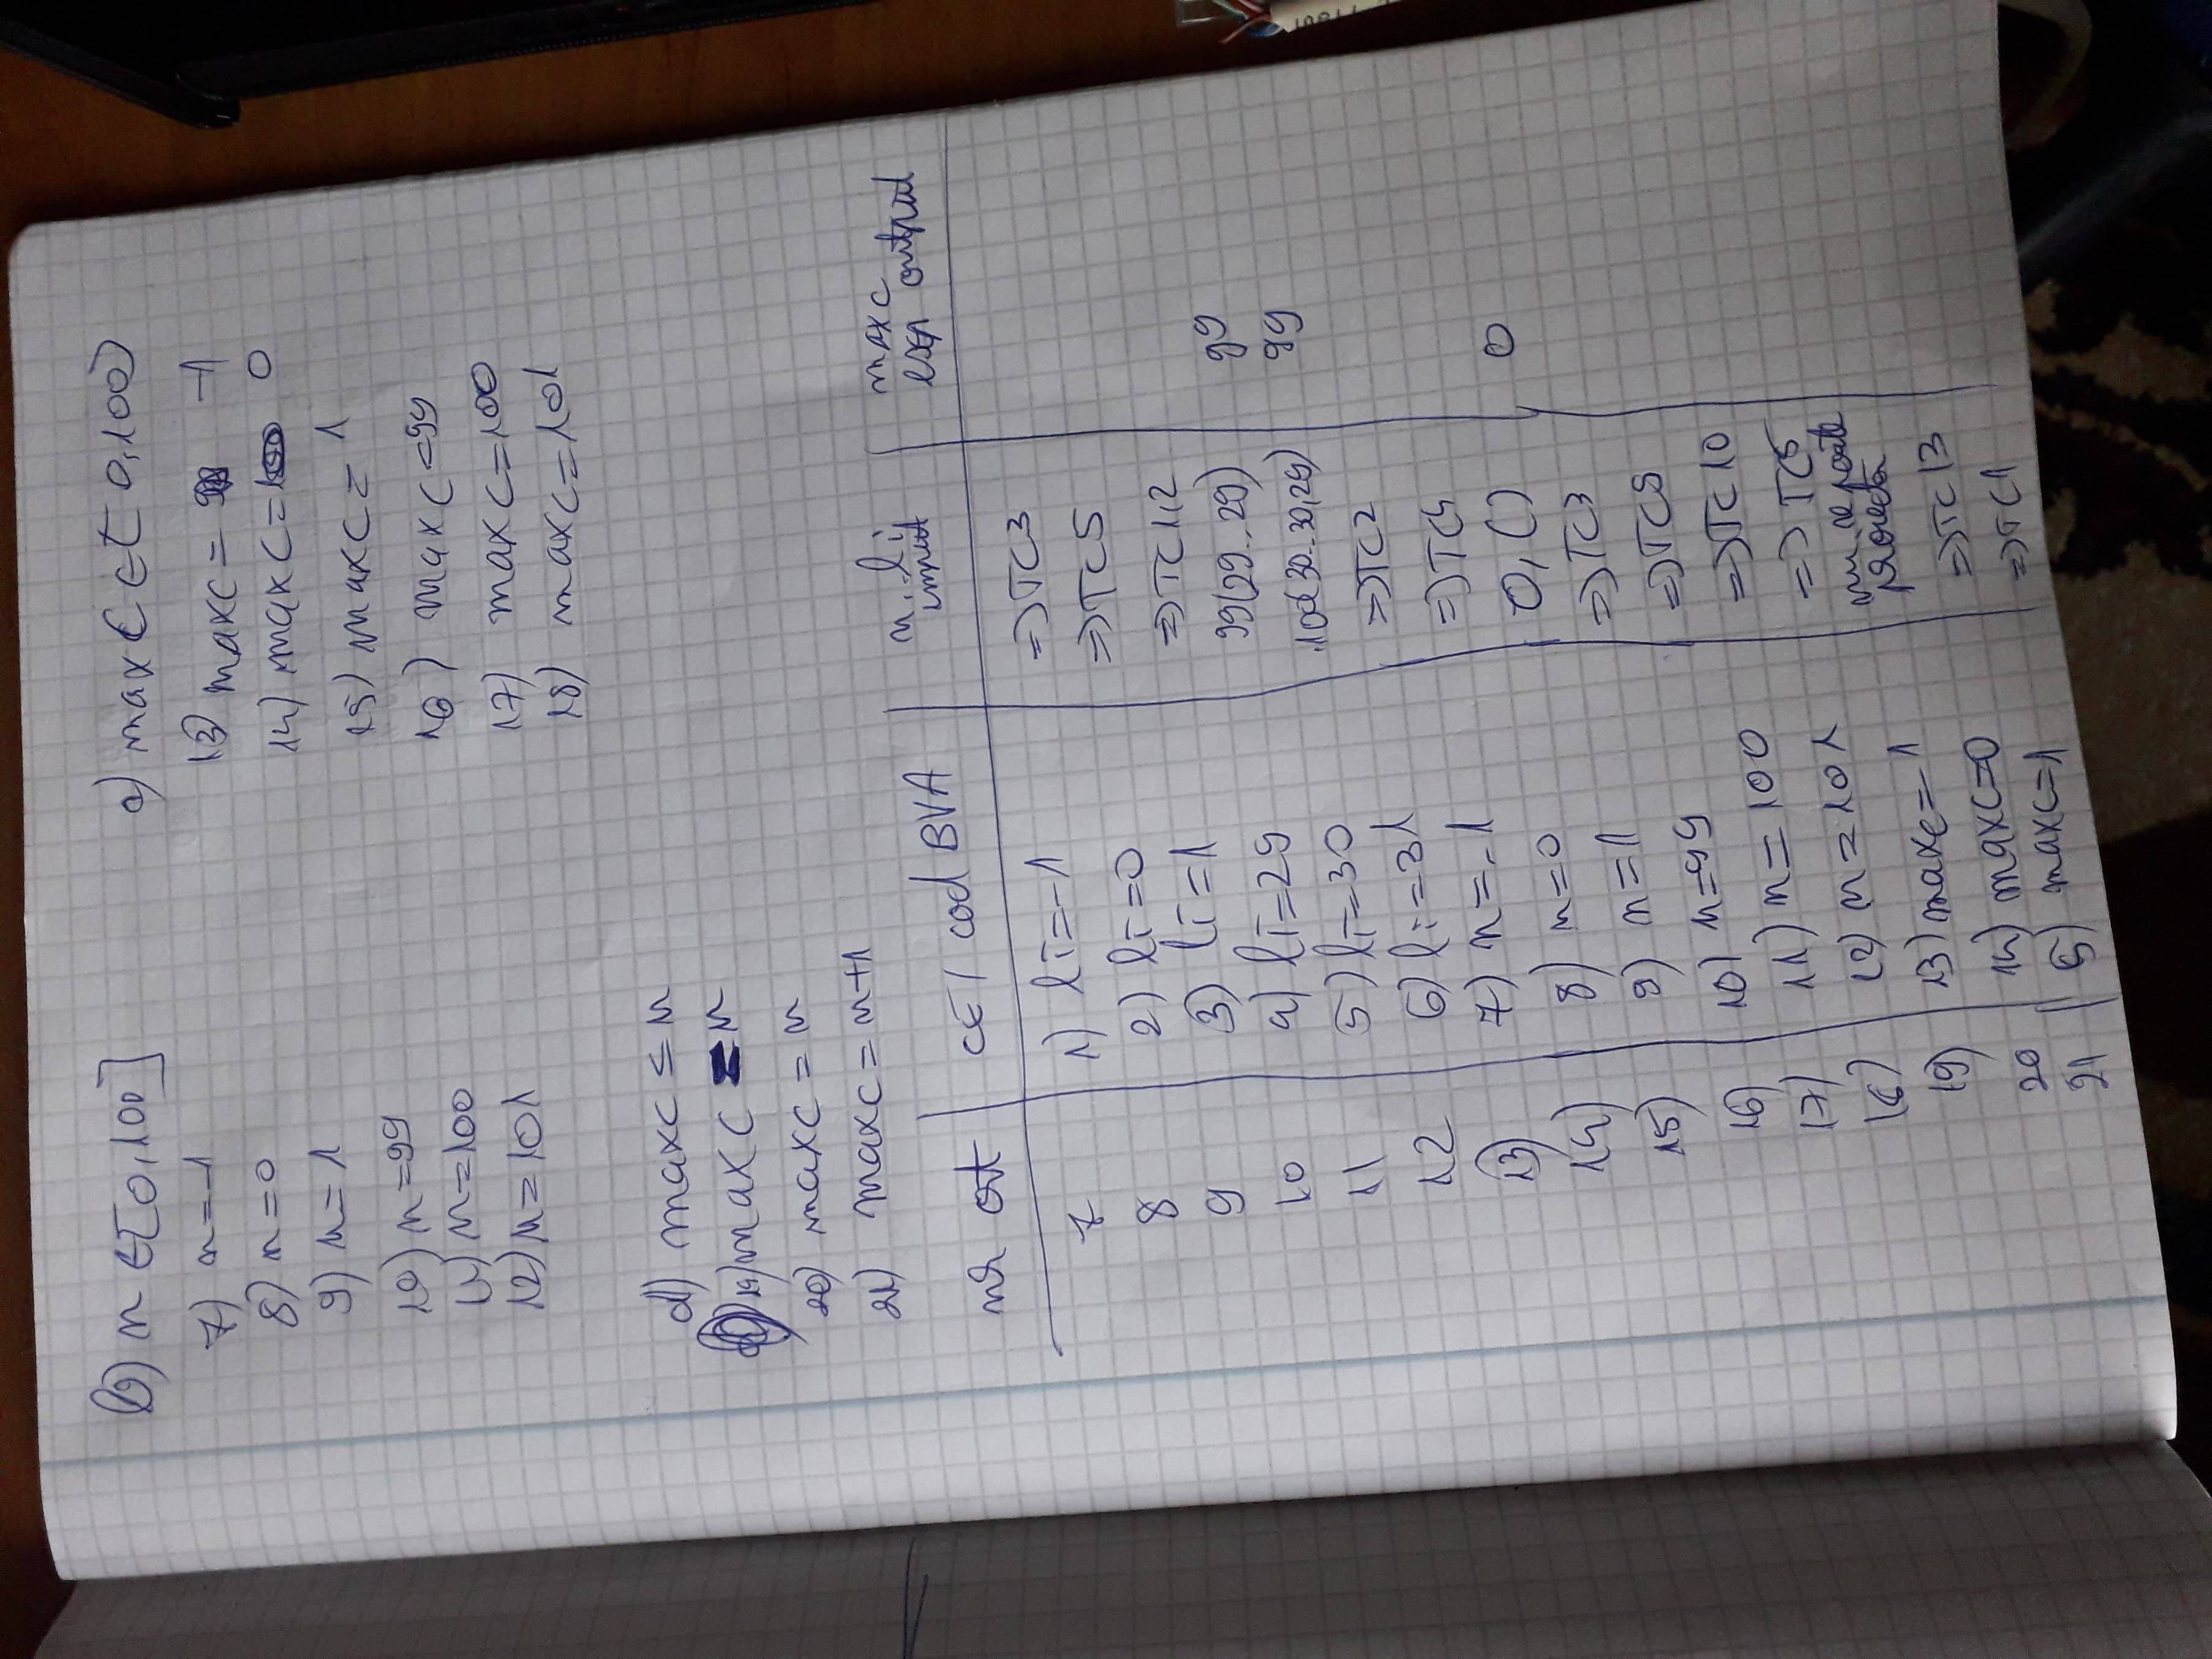 b) n ∈ [0,100]
7) n=-1
8) n=0
9) n=1
10) n=99
11) n=100
12) n=101
c) maxC ∈ [0,100)
13) maxc = -1
14) maxc = 0
15) maxc = 1
16) maxc=99
17) maxc=100
18) maxc=101
d) maxc ≤ n
19) maxc = n
20) maxc = n
21) maxc = n+1
nr crt | CE / cod BVA | n, li input | maxc exp output
7 | 1) li=-1 | =>TC3
8 | 2) li=0 | =>TC5
9 | 3) li=1 | =>TC1,2
10 | 4) li=29 | 99(29..29) | 99
11 | 5) li=30 | 100(30..30,29) | 99
12 | 6) li=31 | =>TC2
13) | 7) n=-1 | =>TC4
14) | 8) n=0 | 0, () | 0
15) | 9) n=1 | =>TC3
16) | 10) n=99 | =>TC9
17) | 11) n=100 | =>TC10
18) | 12) n=101 | =>TC5
19) | 13) maxc=-1 | nu se poate proiecta
20 | 14) maxc=0 | =>TC13
21 | 5) maxc=1 | =>TC1